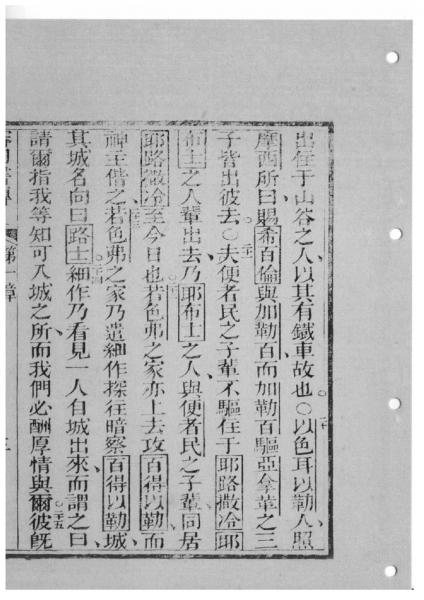 出住于山谷之人以其有鐵車故也○以色耳以勒人照
摩西所曰賜希百倫與加勒百而加勒百驅亞拿華之三
子皆出彼去○夫便者民之子輩不驅住于耶路撒冷耶
布士之人輩出去乃耶布士之人與便者民之子輩同居
耶路撒冷至今日也若色弗之家亦上去攻百得以勒而
神主偕之若色弗之家乃遣細作探往暗察百得以勒城
其城名向曰路士細作乃看見一人自城出來而謂之曰
請爾指我等知可入城之所而我們必酬厚情與爾彼既
第一章